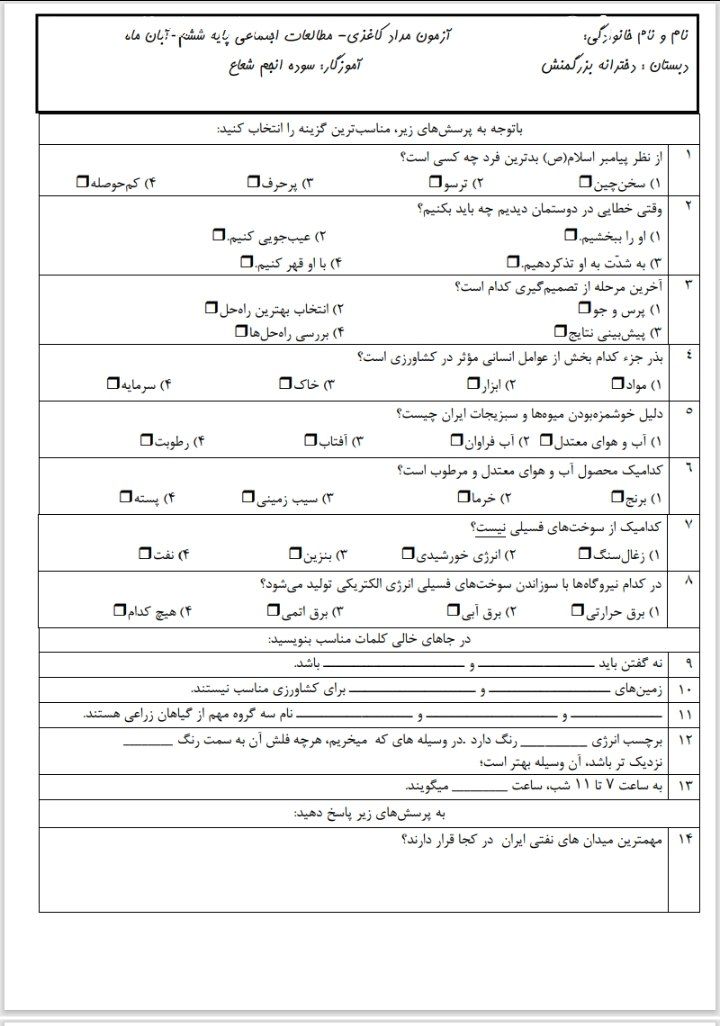 نام و نام خانوادگی: آزمون مداد کاغذی- مطالعات اجتماعی پایه ششم-آبان ماه
دبستان : دخترانه بزرگمنش آموزگار: سوره انجم شعاع
باتوجه به پرسش‌های زیر، مناسب‌ترین گزینه را انتخاب کنید:
۱ از نظر پیامبر اسلام(ص) بدترین فرد چه کسی است؟
۱) سخن‌چین❒ ۲) ترسو❒ ۳) پرحرف❒ ۴) کم‌حوصله❒
۲ وقتی خطایی در دوستمان دیدیم چه باید بکنیم؟
۱) او را ببخشیم.❒ ۲) عیب‌جویی کنیم.❒
۳) به شدّت به او تذکردهیم.❒ ۴) با او قهر کنیم.❒
۳ آخرین مرحله از تصمیم‌گیری کدام است؟
۱) پرس و جو❒ ۲) انتخاب بهترین راه‌حل❒
۳) پیش‌بینی نتایج❒ ۴) بررسی راه‌حل‌ها❒
٤ بذر جزء کدام بخش از عوامل انسانی مؤثر در کشاورزی است؟
۱) مواد❒ ۲) ابزار❒ ۳) خاک❒ ۴) سرمایه❒
٥ دلیل خوشمزه‌بودن میوه‌ها و سبزیجات ایران چیست؟
۱) آب و هوای معتدل❒ ۲) آب فراوان❒ ۳) آفتاب❒ ۴) رطوبت❒
٦ کدامیک محصول آب و هوای معتدل و مرطوب است؟
۱) برنج❒ ۲) خرما❒ ۳) سیب زمینی❒ ۴) پسته❒
۷ کدامیک از سوخت‌های فسیلی نیست؟
۱) زغال‌سنگ❒ ۲) انرژی خورشیدی❒ ۳) بنزین❒ ۴) نفت❒
۸ در کدام نیروگاه‌ها با سوزاندن سوخت‌های فسیلی انرژی الکتریکی تولید می‌شود؟
۱) برق حرارتی❒ ۲) برق آبی❒ ۳) برق اتمی❒ ۴) هیچ کدام❒
در جاهای خالی کلمات مناسب بنویسید:
۹ نه گفتن باید ــــــــــــــــ و ــــــــــــــــ باشد.
۱۰ زمین‌های ــــــــــــــــ و ــــــــــــــــ برای کشاورزی مناسب نیستند.
۱۱ ــــــــــــــــ و ــــــــــــــــ و ــــــــــــــــ نام سه گروه مهم از گیاهان زراعی هستند.
۱۲ برچسب انرژی _________ رنگ دارد .در وسیله های که میخریم، هرچه فلش آن به سمت رنگ _______
نزدیک تر باشد، آن وسیله بهتر است؛
۱۳ به ساعت ۷ تا ۱۱ شب، ساعت ________ میگویند.
به پرسش‌های زیر پاسخ دهید:
۱۴ مهمترین میدان های نفتی ایران در کجا قرار دارند؟